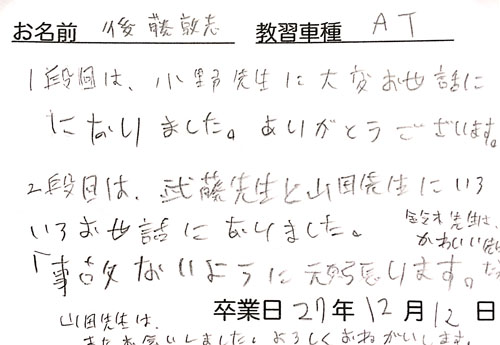 お名前 後藤敦志 教習車種 AT
1段目は、小野先生に大変お世話に
になりました。ありがとうございます。
2段目は、武藤先生と山田先生にいろ
いろお世話になりました。
鈴木先生は、
かわいい
「事故ないように頑張ります。
卒業日 27年 12月 12日
山田先生は、
またお会いしましたら、よろしくおねがいします。